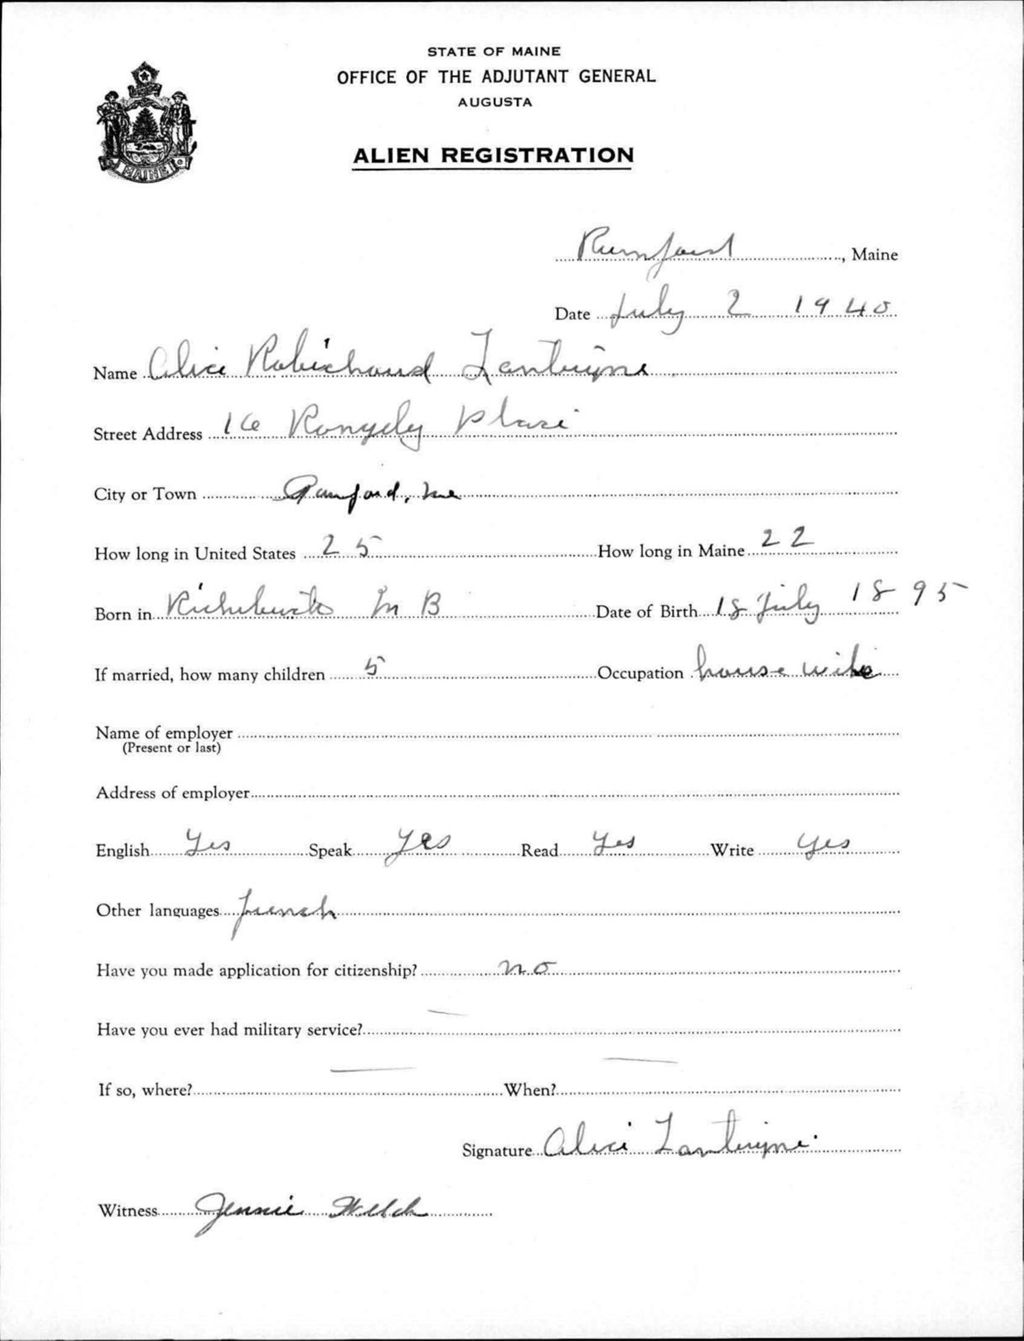 STATE OF MAINE
OFFICE OF THE ADJUTANT GENERAL
AUGUSTA
ALIEN REGISTRATION
MAINE
Rumford, Maine
Date July 2 1940
Name Alice Robichaud
Street Address 16 Place
City or Town Rumford, Me
How long in United States 25 How long in Maine 22
Born in N B Date of Birth 18 July 1895
If married, how many children 5 Occupation house wife
Name of employer
(Present or last)
Address of employer
English Yes Speak Yes Read Yes Write Yes
Other languages french
Have you made application for citizenship? no
Have you ever had military service? —
If so, where? — When? —
Signature Alice
Witness Jennie Welch